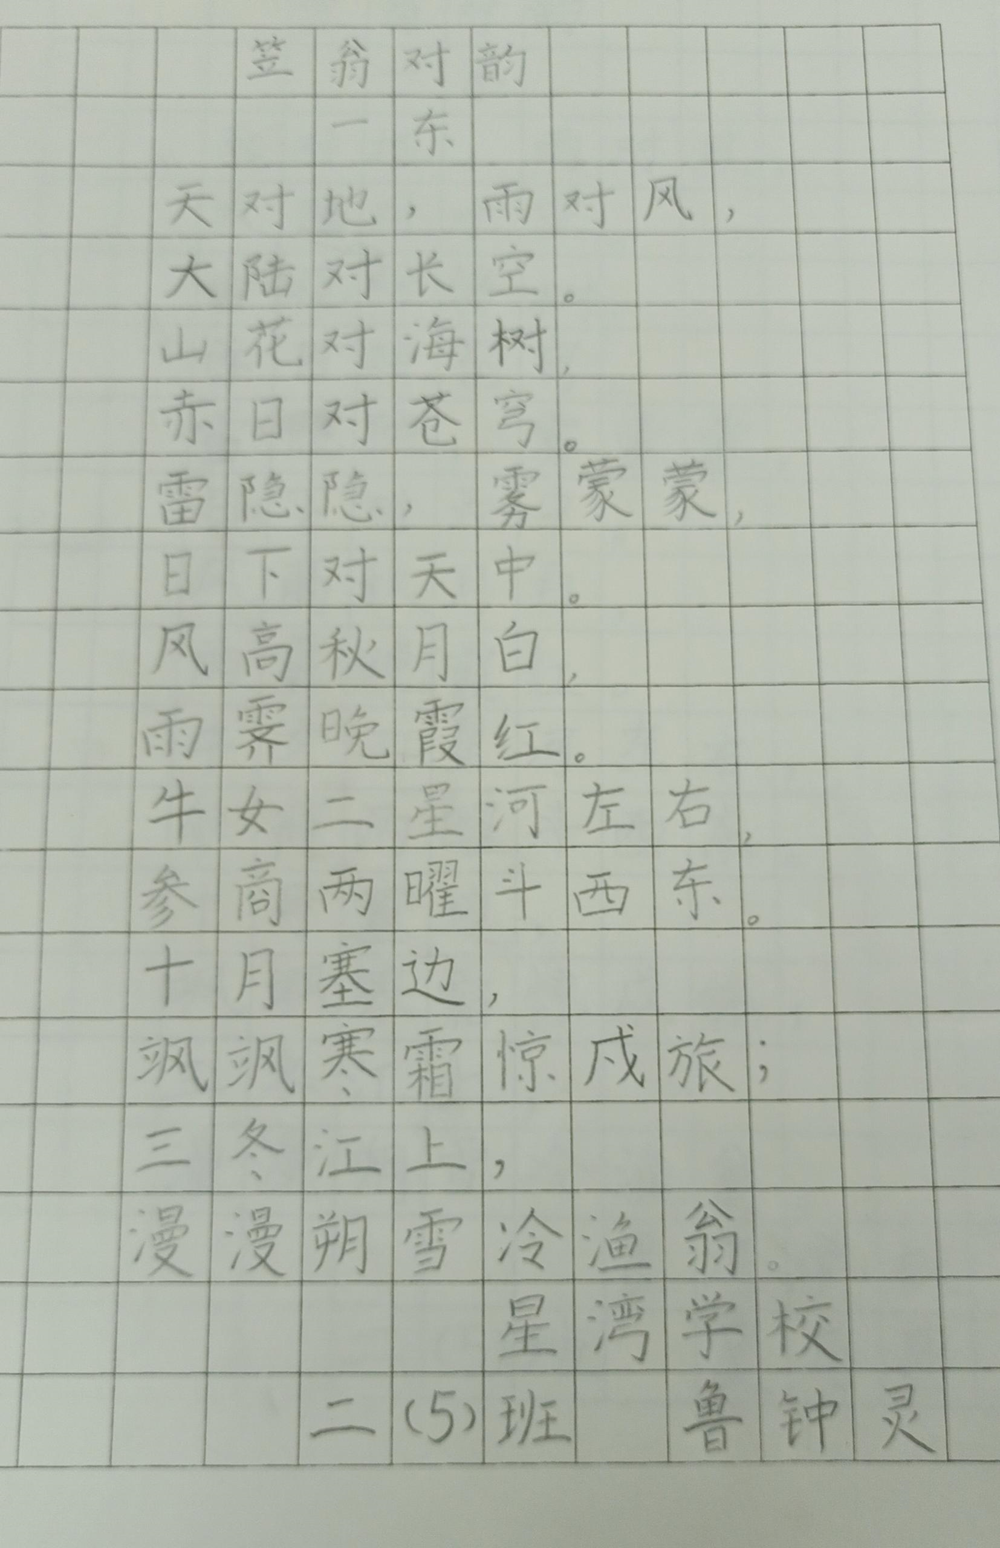 笠翁对韵
一东
天对地，雨对风，
大陆对长空。
山花对海树，
赤日对苍穹。
雷隐隐，雾蒙蒙，
日下对天中。
风高秋月白，
雨霁晚霞红。
牛女二星河左右，
参商两曜斗西东。
十月塞边，
飒飒寒霜惊戍旅；
三冬江上，
漫漫朔雪冷渔翁。
星湾学校
二(5)班 鲁钟灵